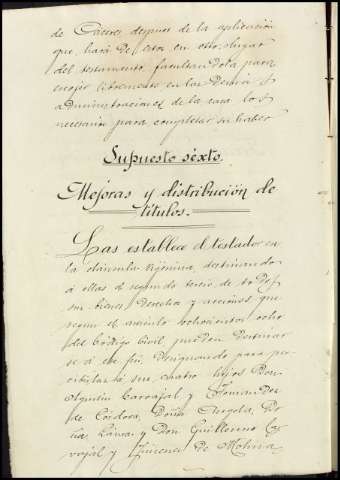 de Cáceres despues de la aplicación
que hará de estos en otro lugar
del testamento, facultandola para
escojer libremente en las demás
administraciones de la casa lo
necesario para completar su haber
Supuesto sexto.
Mejoras y distribución de
títulos.
Las establece el testador en
la cláusula tijesima, destinando
á ellas el segundo tercio de todos
sus bienes, derechos y acciones, que
segun el articulo ochocientos ocho
del Código Civil pueden destinar
se á ese fin, designando para per
cibirlas á sus cuatro hijos Don
Agustin Carvajal y Fernandez
de Córdova, Doña Angela, Do
ña Laura y Don Guillermo Car
vajal y Jimenez de Molina